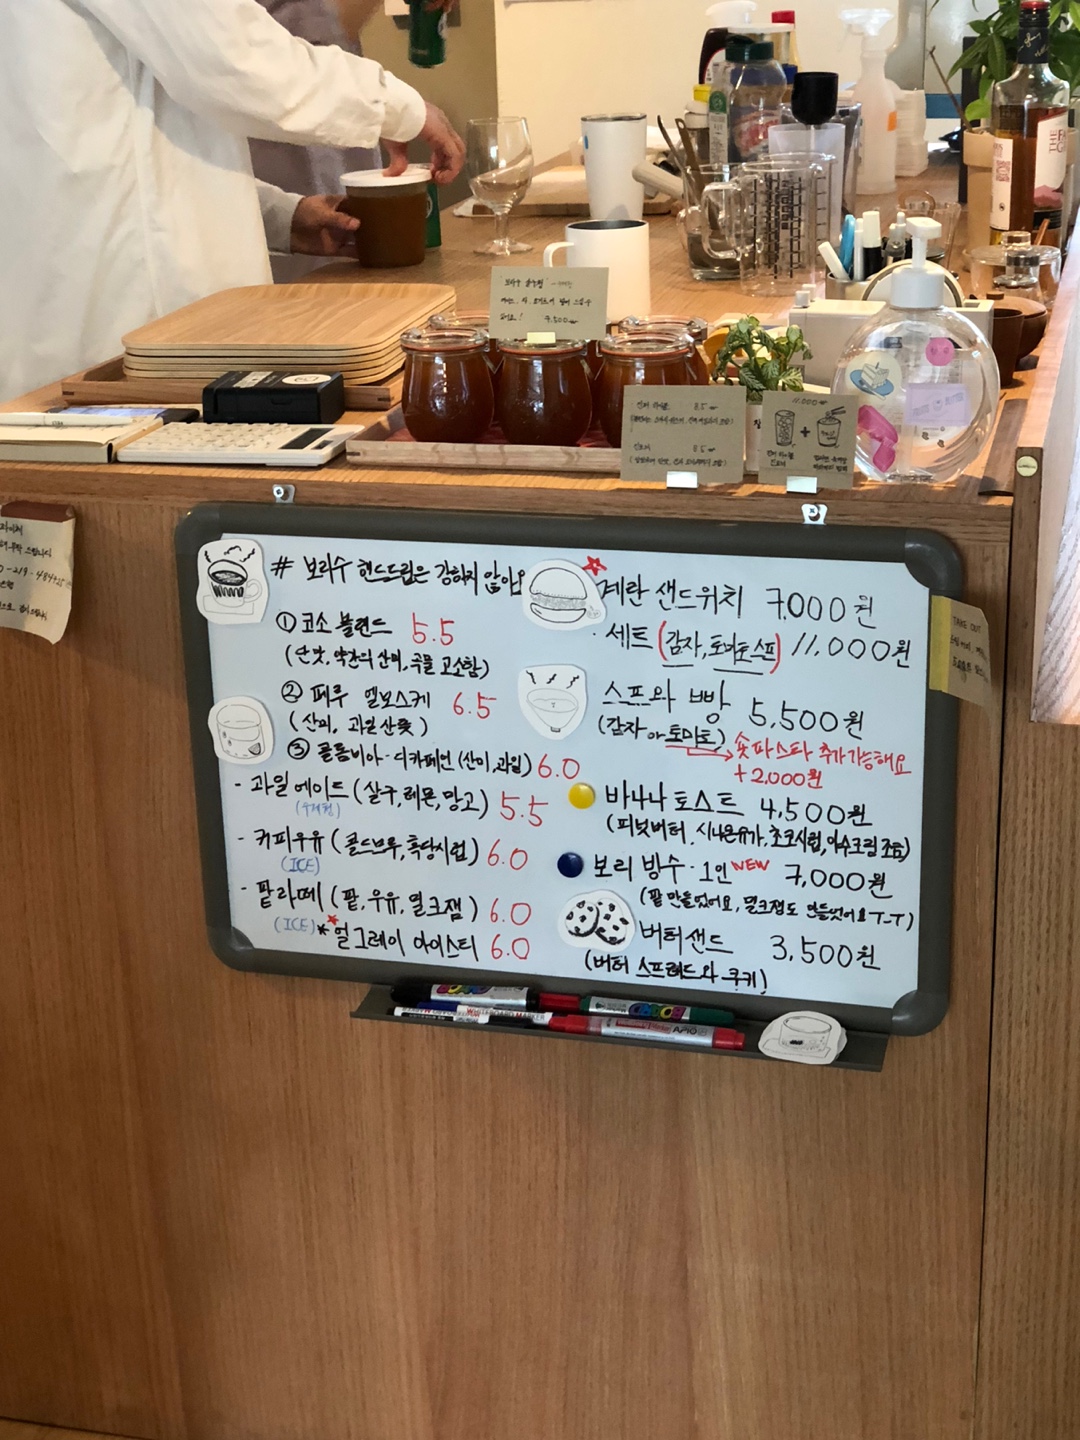 # 보리수 핸드드립은 강하지 않아요
① 코소 블렌드 5.5
(단맛, 약간의 산미, 곡물 고소함)
② 페루 엘보스케 6.5
(산미, 과일산뜻)
③ 콜롬비아-디카페인 (산미,과일) 6.0
- 과일에이드 (살구,레몬,망고) 5.5
(수제청)
- 커피우유 (콜드브루,흑당시럽) 6.0
(ICE)
- 팥라떼 (팥,우유,밀크잼) 6.0
(ICE)
*얼그레이 아이스티 6.0
계란 샌드위치 7,000원
· 세트 (감자,토마토스프) 11,000원
스프와 빵 5,500원
(감자 or 토마토)
숏파스타 추가가능해요
+2,000원
바나나토스트 4,500원
(피넛버터, 시나몬슈가, 초코시럽, 아수크림 조합)
보리 빙수·1인 NEW 7,000원
(팥 만들었어요, 밀크잼도 만들었어요 T-T)
버터샌드 3,500원
(버터 스프레드와 쿠키!)
7,500
8.5
8.5
11,000
TAKE OUT